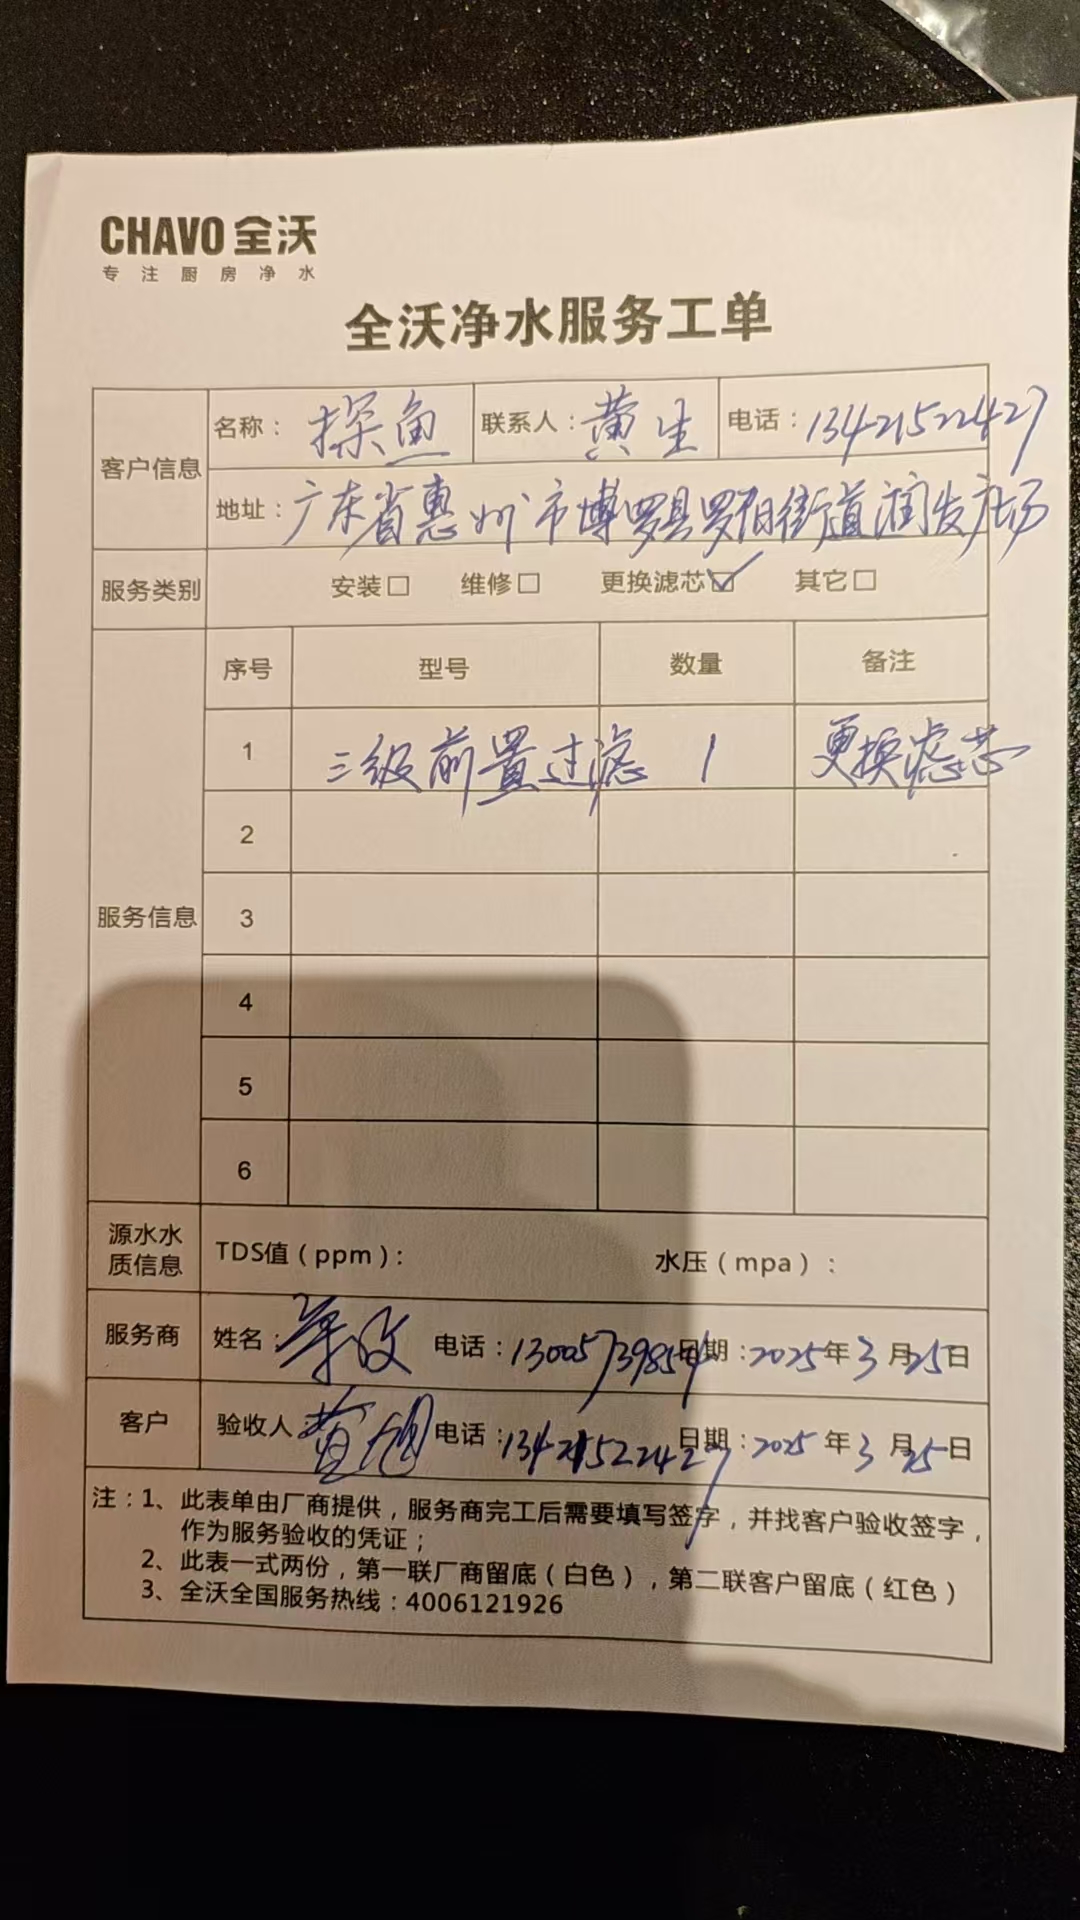 CHAVO 全沃
专注厨房净水
全沃净水服务工单
客户信息 名称：探鱼 联系人：黄生 电话：13421522427
地址：广东省惠州市博罗县罗阳街道润发广场
服务类别 安装□ 维修□ 更换滤芯☑ 其它□
服务信息 序号 型号 数量 备注
1 三级前置过滤 1 更换滤芯
2
3
4
5
6
源水水质信息 TDS值（ppm）： 水压（mpa）：
服务商 姓名： 电话：13005739854 日期：2025年3月25日
客户 验收人：黄旭 电话：13421522427 日期：2025年3月25日
注：1、此表单由厂商提供，服务商完工后需要填写签字，并找客户验收签字，
作为服务验收的凭证；
2、此表一式两份，第一联厂商留底（白色），第二联客户留底（红色）
3、全沃全国服务热线：4006121926